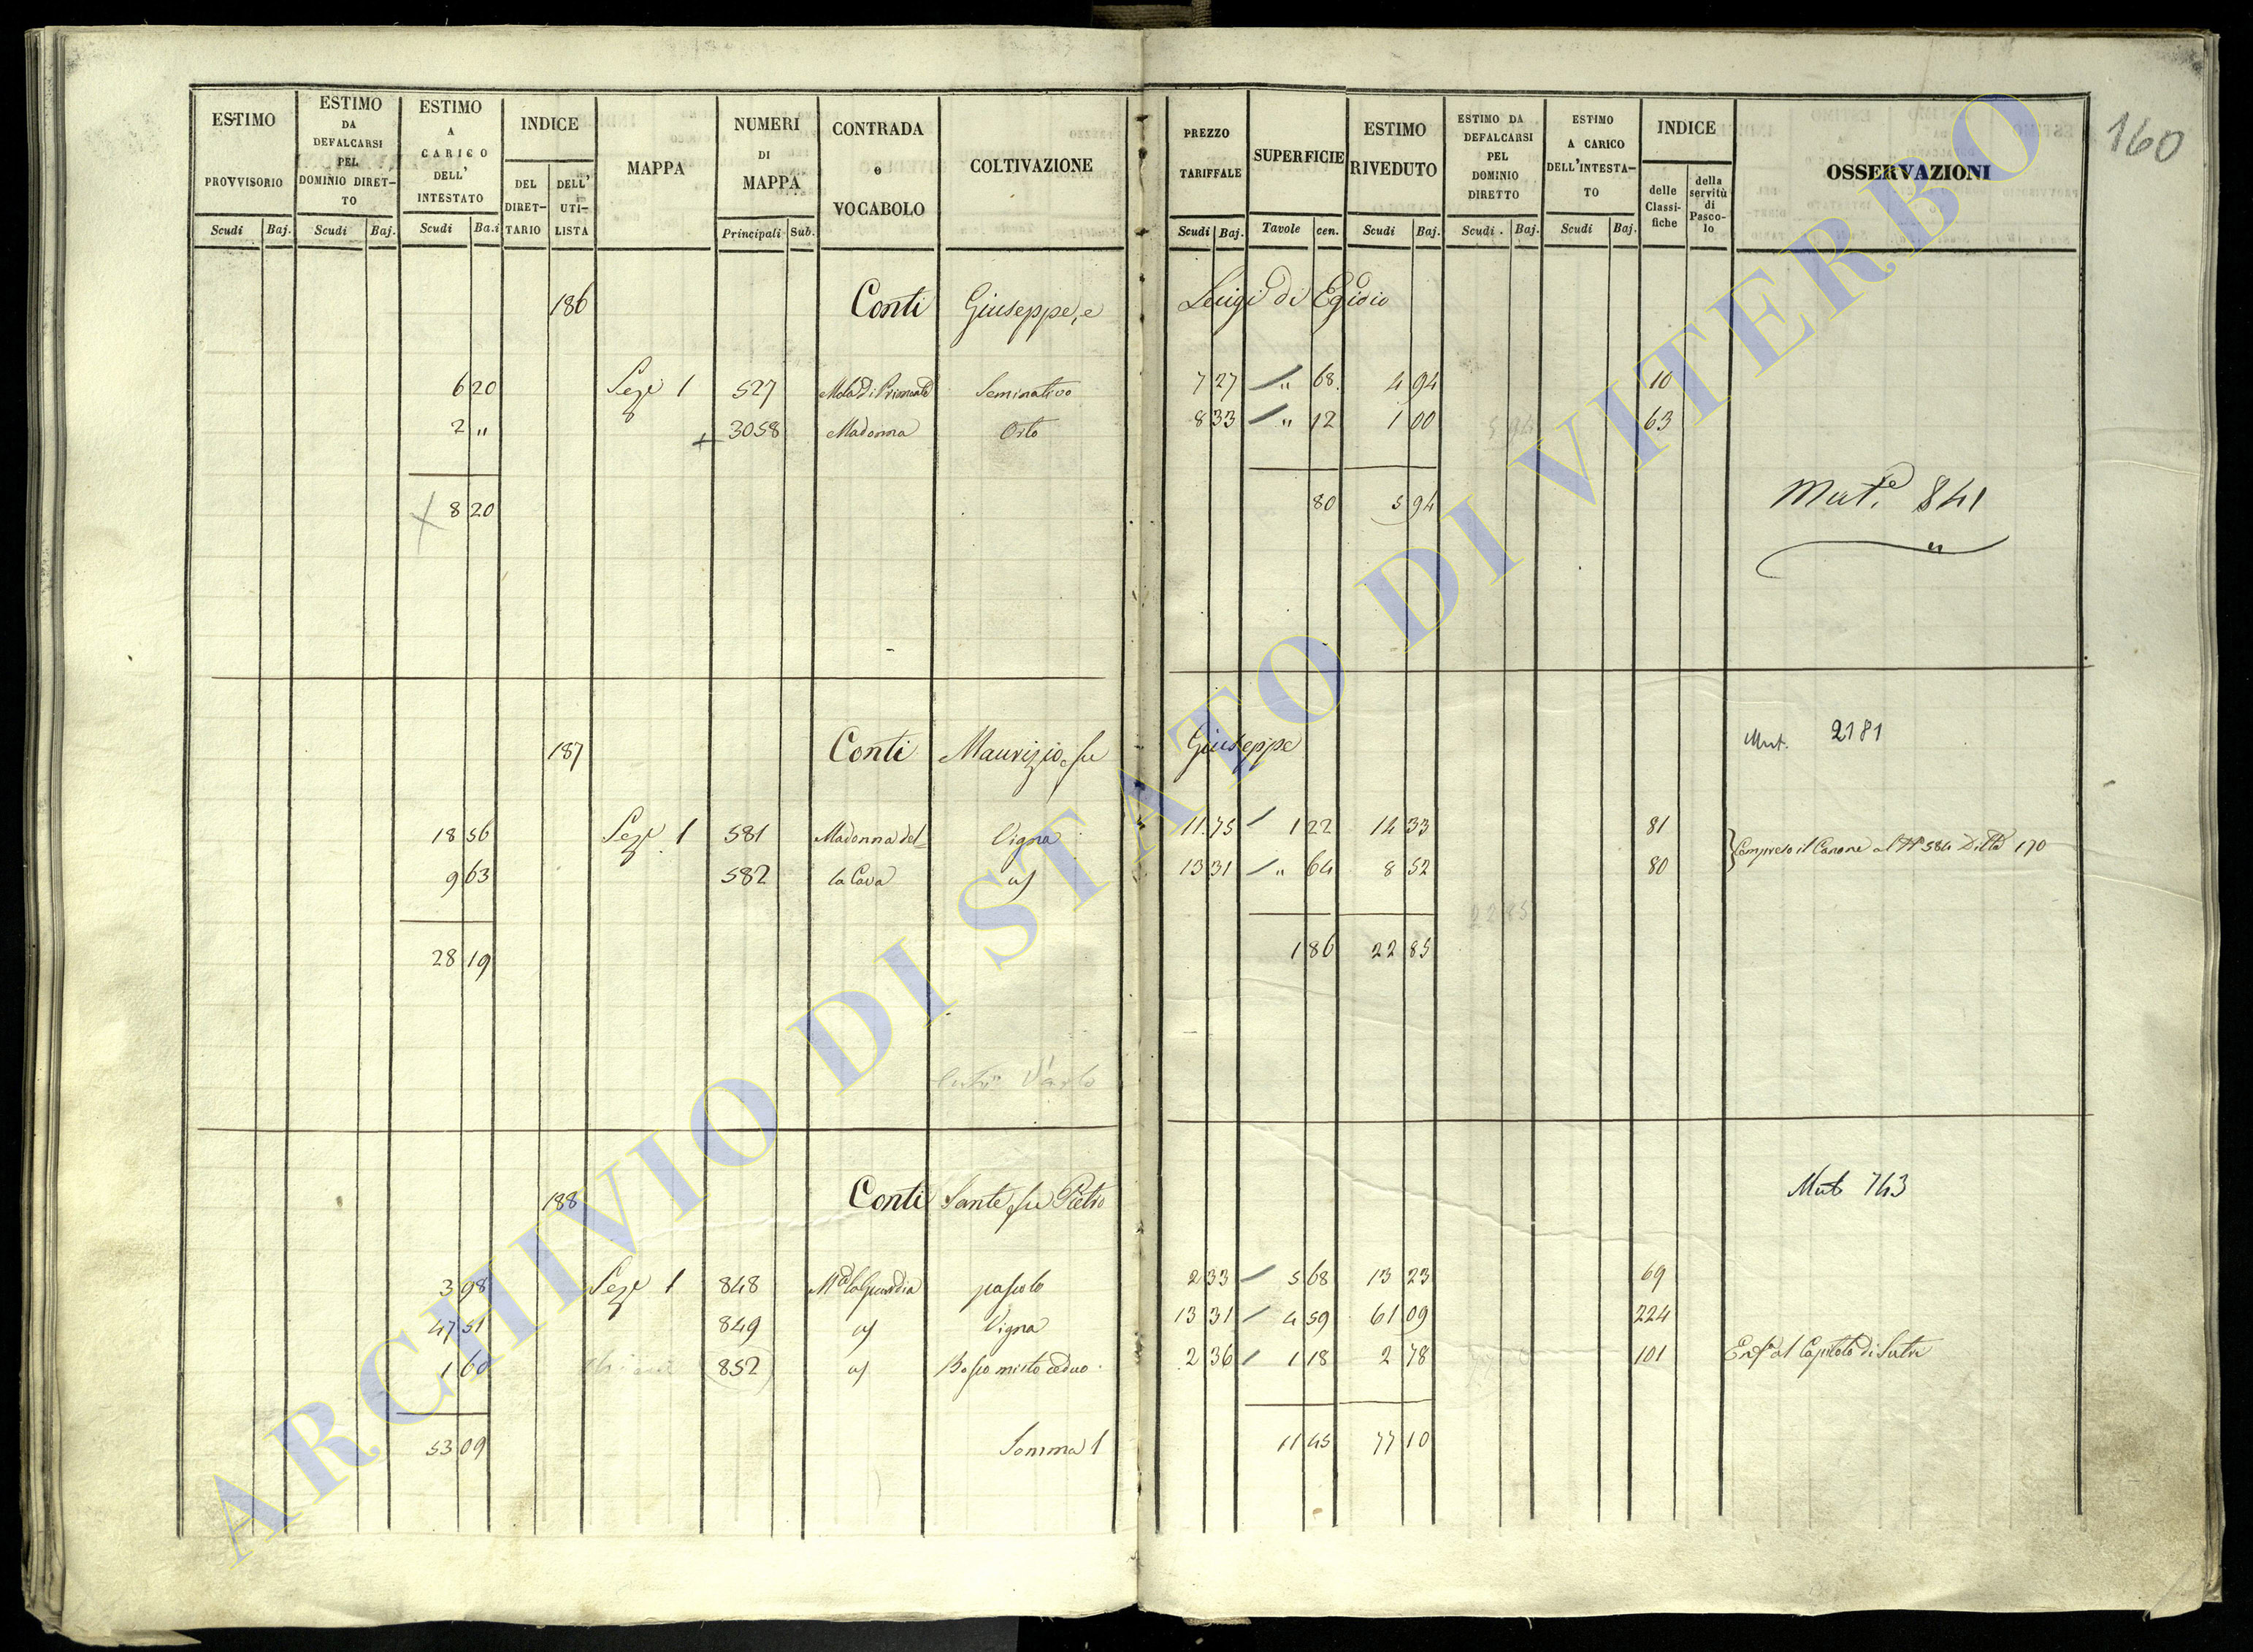 160
ESTIMO PROVVISORIO Scudi Baj.
ESTIMO DA DEFALCARSI PEL DOMINIO DIRET- TO Scudi Baj.
ESTIMO A CARICO DELL' INTESTATO Scudi Ba.i
INDICE DEL DIRET- TARIO DELL' UTI- LISTA
MAPPA
NUMERI DI MAPPA Principali Sub.
CONTRADA o VOCABOLO
COLTIVAZIONE
PREZZO TARIFFALE Scudi Baj.
SUPERFICIE Tavole cen.
ESTIMO RIVEDUTO Scudi Baj.
ESTIMO DA DEFALCARSI PEL DOMINIO DIRETTO Scudi. Baj.
ESTIMO A CARICO DELL'INTESTA- TO Scudi Baj.
INDICE delle Classi- fiche della servitù di Pasco- lo
OSSERVAZIONI
186 Conti Giuseppe, e Luigi di Egidio
6 20 Seze 1 527 Seminativo 7 27 " 68. 4 94 10
2 " + 3058 Madonna Orto 8 33 " 12 1 00 5 94 63
8 20 80 5 94 Mut.e 841
187 Conti Maurizio fu Giuseppe Mut. 2181
18 56 Seze 1 581 Madonna del= Vigna 11 75 1 22 14 33 81
9 63 582 la Cava 13 31 " 64 8 52 80 Compreso il Canone al N 584 Ditta 170
22 85
28 19 1 86 22 85
188 Conti Sante fu Pietro Mut 743
3 98 Seze 1 848 Ma la Guardia pascolo 2 33 5 68 13 23 69
47 51 849 Vigna 13 31 4 59 61 09 224
1 60 852 Bosco misto ceduo 2 36 1 18 2 78 101 Enf.a al Capitolo di Sutri
53 09 Somma 1 11 45 77 10
ARCHIVIO DI STATO DI VITERBO